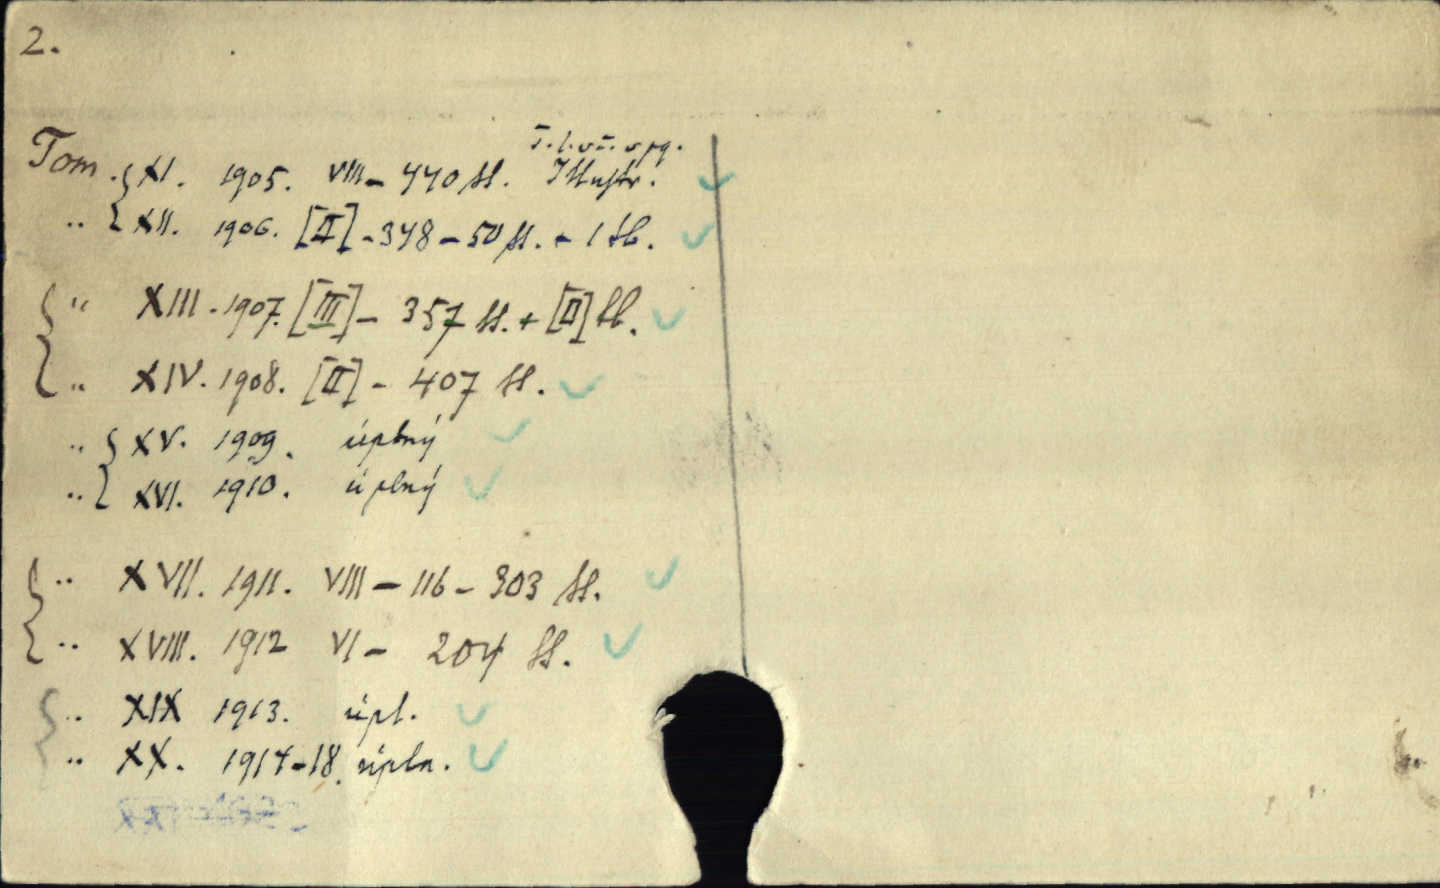 2.
T. l. v č. v pg.
Tom. XI. 1905. VIII - 440 ss. Illustr.
" XII. 1906. [II] - 348 - 50 ss. + 1 tb.
" XIII. 1907. [III] - 357 ss. + [II] tb.
" XIV. 1908. [II] - 407 ss.
" XV. 1909. úplný
" XVI. 1910. úplný
" XVII. 1911. VIII - 116 - 303 ss.
" XVIII. 1912 VI - 204 ss.
" XIX 1913. úpl.
" XX. 1914-18. úpln.